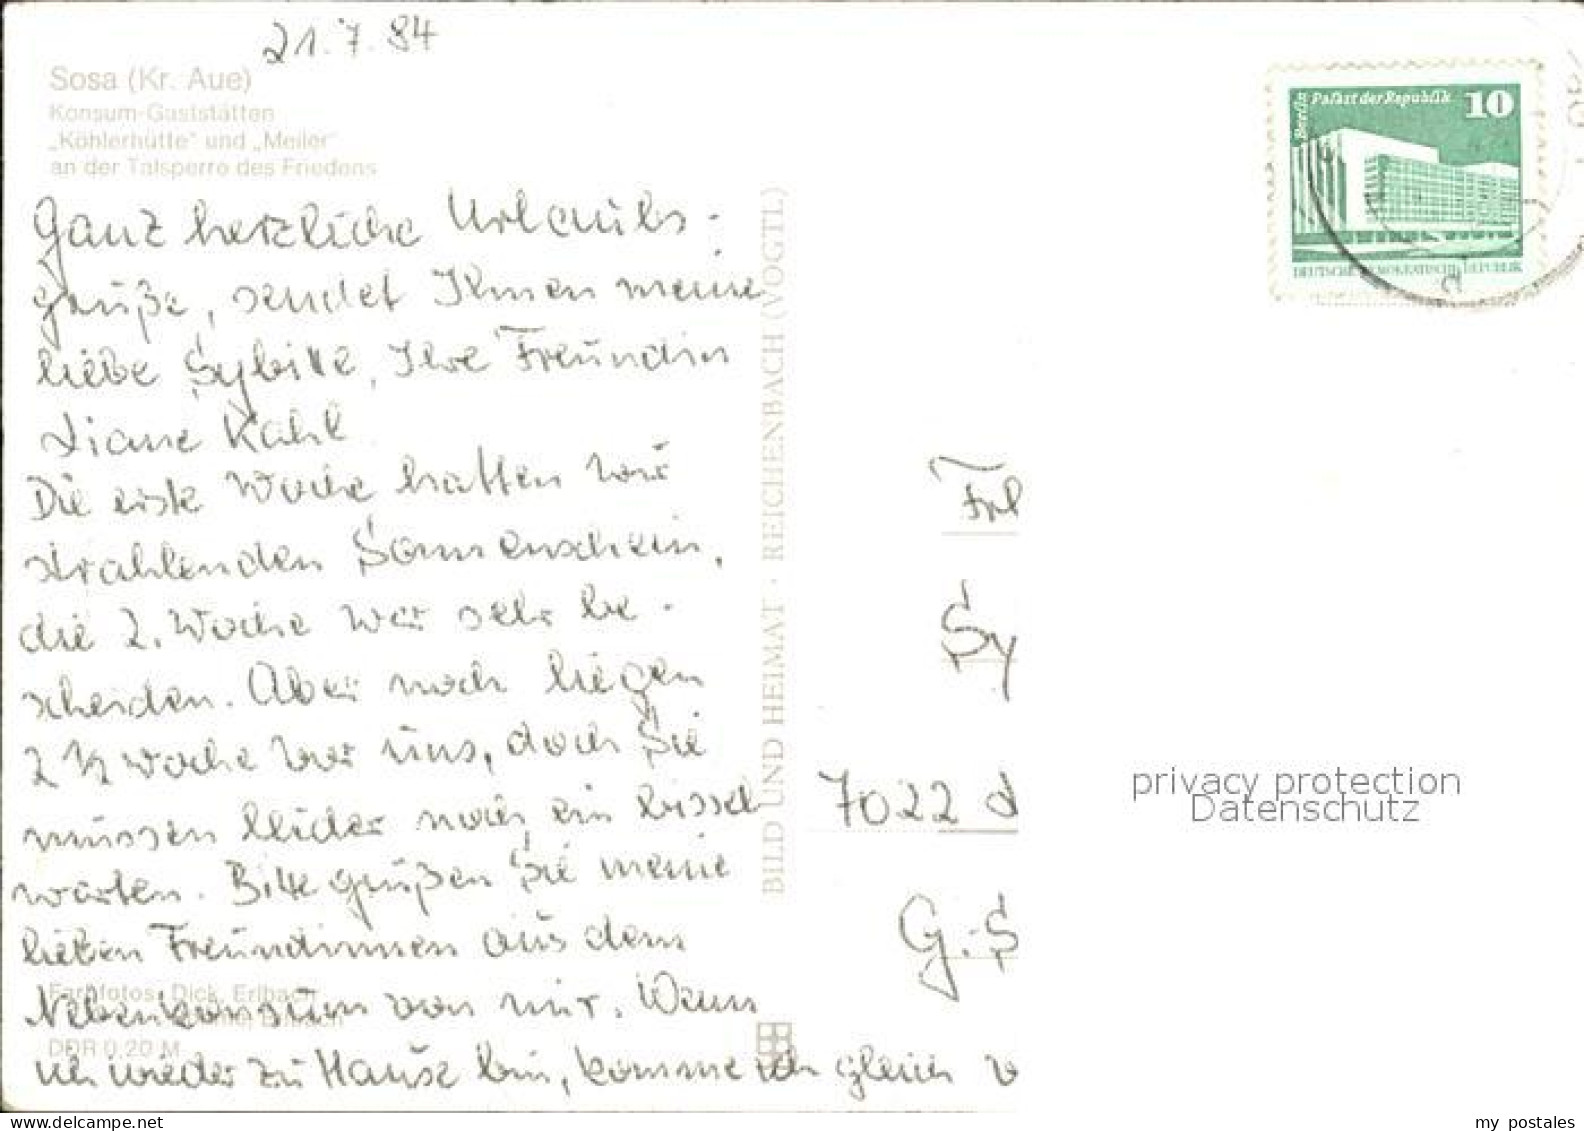 21.7.84
Sosa (Kr. Aue)
Konsum-Gaststätten
„Köhlerhütte" und „Meiler"
an der Talsperre des Friedens
Ganz herzliche Urlaubs-
grüße, sendet Ihnen meine
liebe Sybille, Ihre Freundin
Liane Kahl
Die erste Woche hatten wir
strahlenden Sonnenschein,
die 2. Woche war sehr be-
scheiden. Aber noch liegen
2 ½ Woche vor uns, doch Sie
müssen leider noch ein bissch
warten. Bitte grüßen Sie meine
lieben Freundinnen aus dem
Nebenkonsum von mir. Wenn
ich wieder zu Hause bin, komme ich gleich v
Farbfotos: Dick, Erlbach
Erlbach
DDR 0,20 M
BILD UND HEIMAT · REICHENBACH (VOGTL)
Berlin
Palast der Republik
10
DEUTSCHE DEMOKRATISCHE REPUBLIK
Frl
Sy
7022
G.-S
privacy protection
Datenschutz
my postales
www.delcampe.net